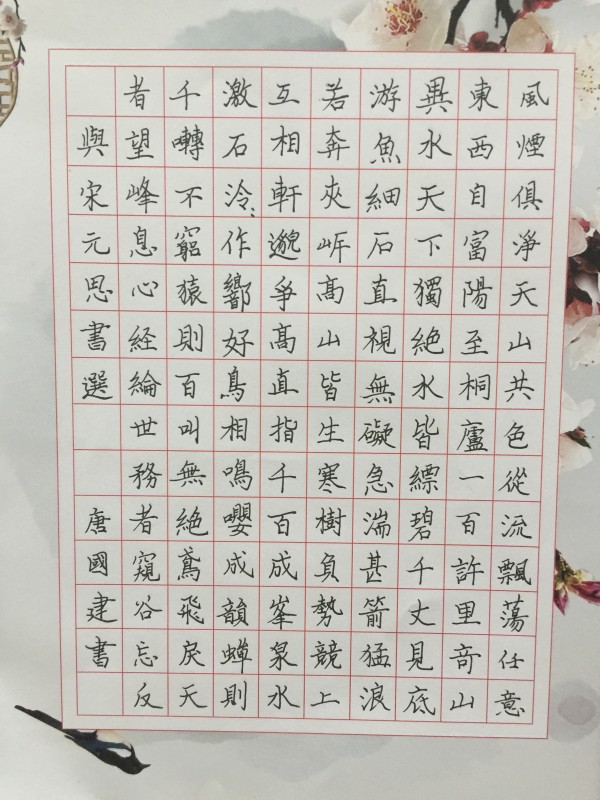 風煙俱淨天山共色從流飄蕩任意
東西自富陽至桐廬一百許里奇山
異水天下獨絶水皆縹碧千丈見底
游魚細石直視無礙急湍甚箭猛浪
若奔夾岸高山皆生寒樹負勢競上
互相軒邈爭高直指千百成峯泉水
激石泠、作響好鳥相鳴嚶成韻蟬則
千囀不窮猿則百叫無絶鳶飛戾天
者望峰息心経綸世務者窺谷忘反
與宋元思書選 唐國建書